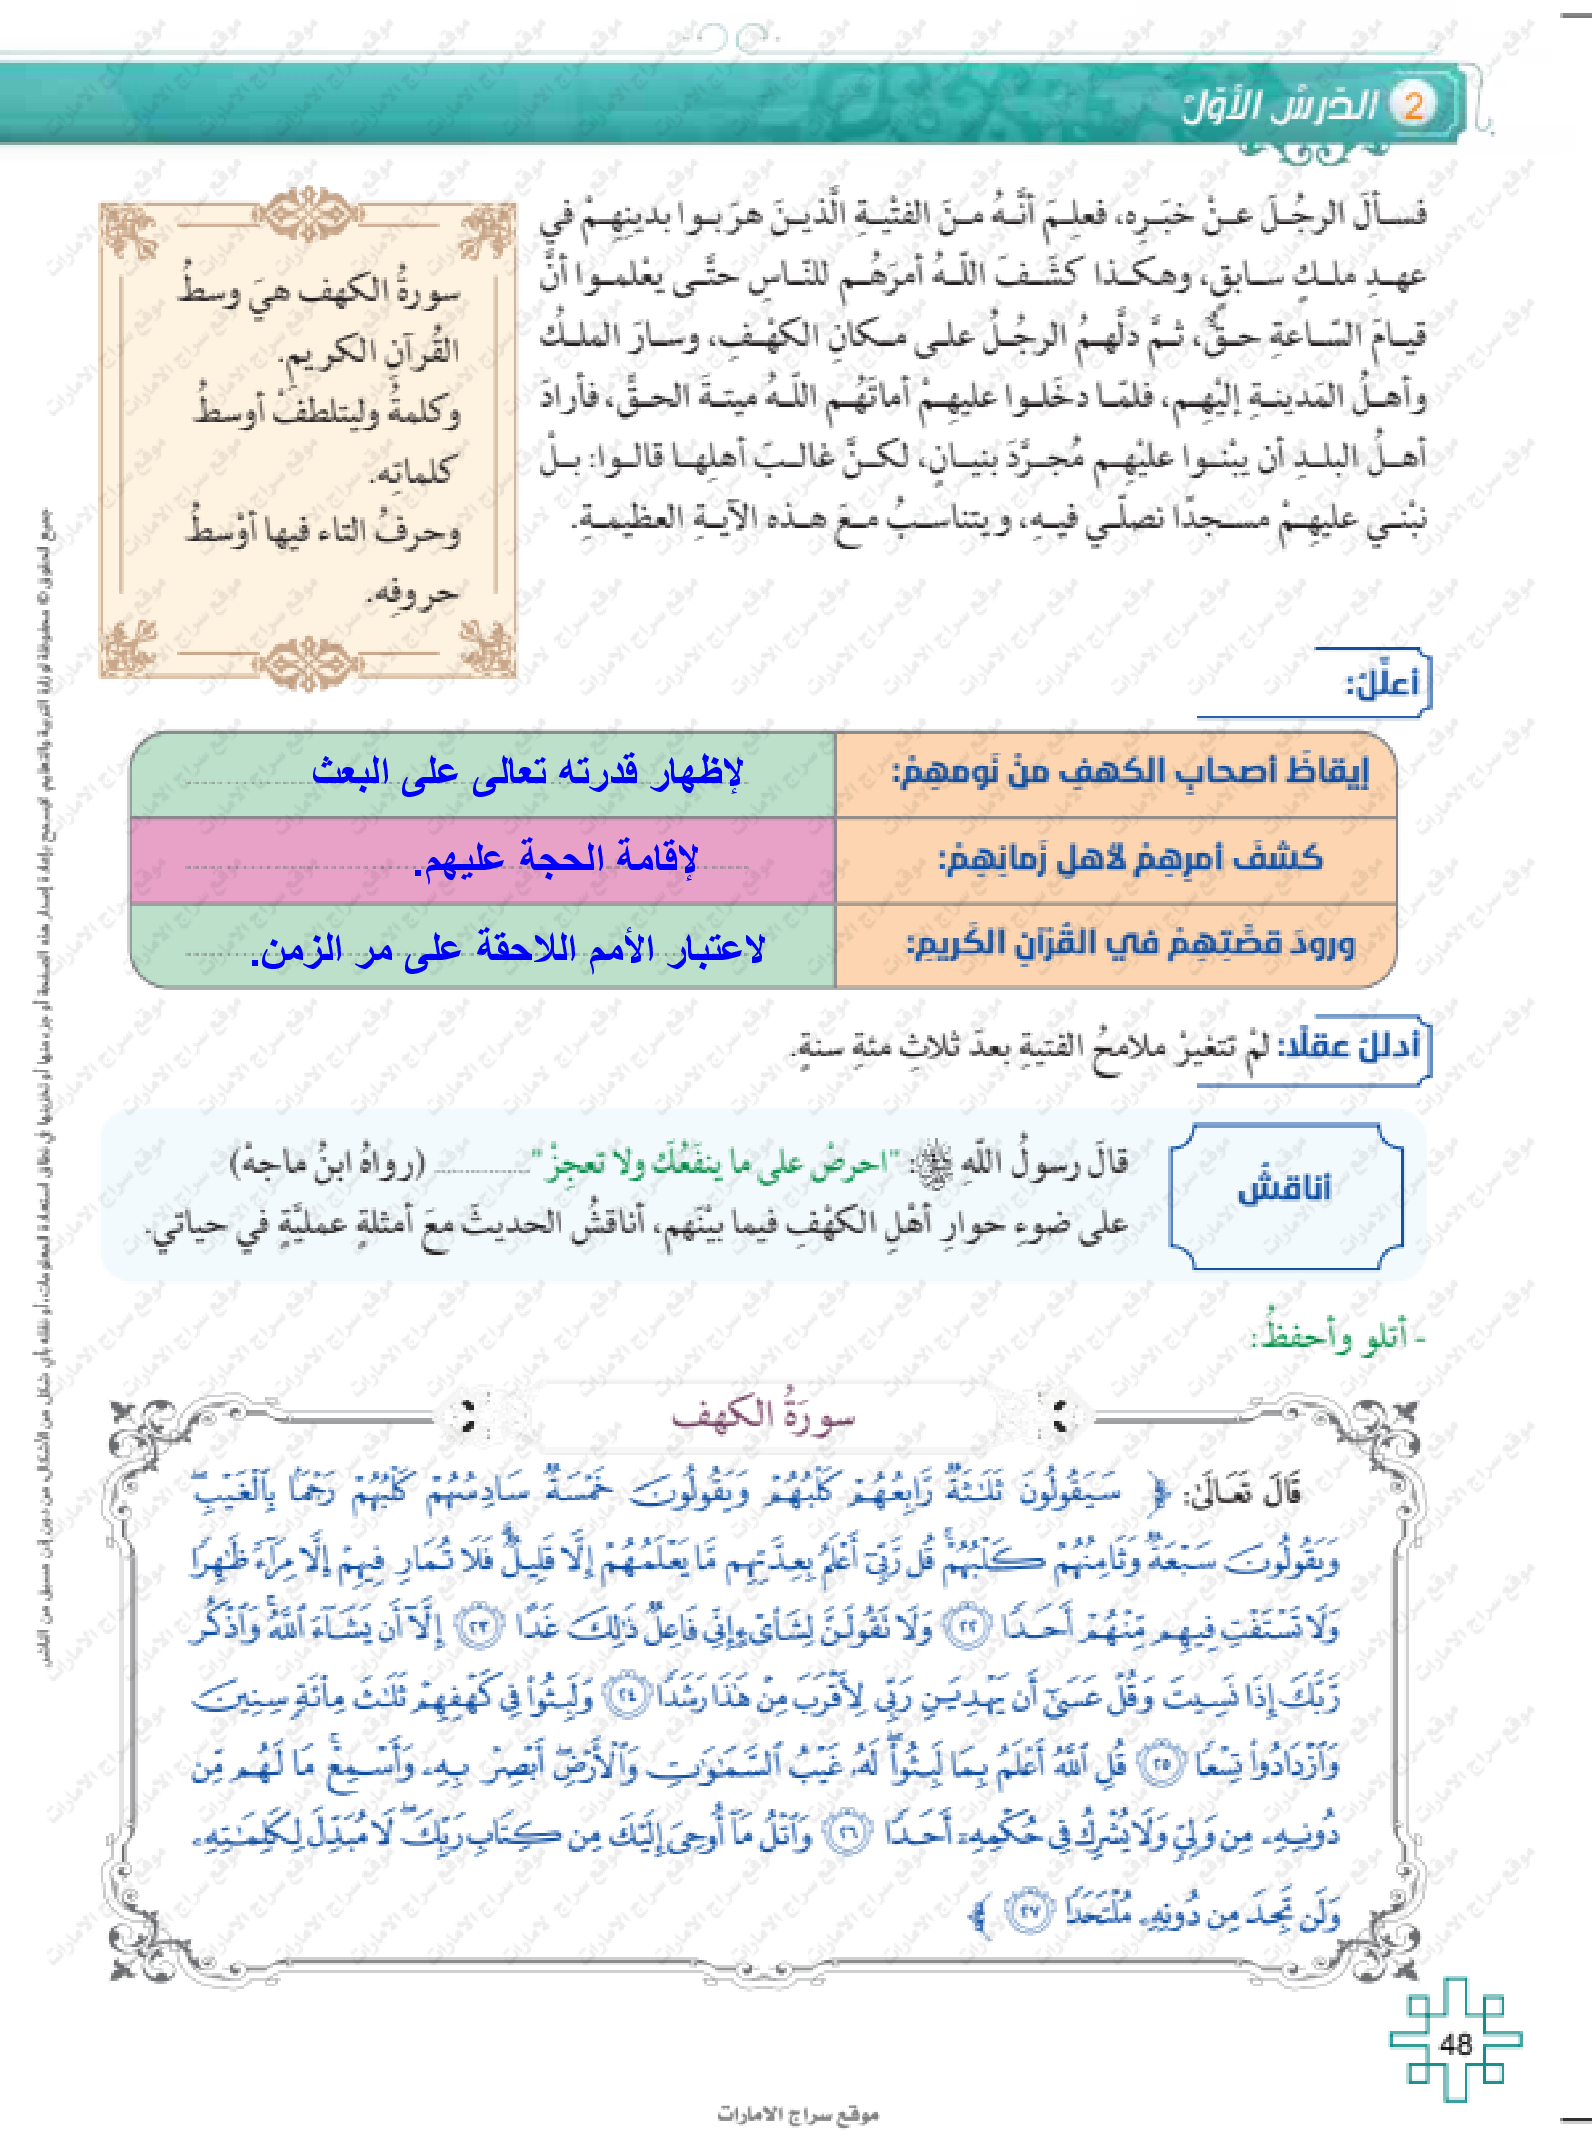 2 الدّرسُ الأوّلُ
فسألَ الرجُلَ عنْ خبَرِه، فعلِمَ أنَّهُ منَ الفتْيةِ الَّذينَ هرَبوا بدينِهِمْ في
عهدِ ملكٍ سابقٍ، وهكذا كشَفَ اللّهُ أمرَهُم للنّاسِ حتَّى يعْلموا أنَّ
قيامَ السّاعةِ حقٌّ، ثمَّ دلَّهمُ الرجُلُ على مكانِ الكهْفِ، وسارَ الملكُ
وأهلُ المَدينةِ إليْهِم، فلمّا دخَلوا عليهِمْ أماتَهُم اللّهُ ميتةَ الحقَّ، فأرادَ
أهلُ البلدِ أن يبْنوا عليْهِم مُجرَّدَ بنيانٍ، لكنَّ غالبَ أهلِها قالوا: بلْ
نبْني عليهِمْ مسجدًا نصلّي فيهِ، ويتناسبُ معَ هذه الآيةِ العظيمةِ.
سورةُ الكهف هيَ وسطُ
القُرآنِ الكريمِ.
وكلمةُ وليتلطفْ أوسطُ
كلماتِه.
وحرفُ التاء فيها أوْسطُ
حروفِه.
أعلّلُ:
إيقاظَ أصحابِ الكهفِ منْ نَومهِمْ: لإظهار قدرته تعالى على البعث
كشفَ أمرِهِمْ لأهلِ زَمانِهِمْ: لإقامة الحجة عليهم.
ورودَ قصَّتِهِمْ في القُرْآنِ الكَريمِ: لاعتبار الأمم اللاحقة على مر الزمن.
أدللُ عقلًا: لمْ تتغيرْ ملامحُ الفتيةِ بعدَ ثلاثِ مئةِ سنةٍ.
أناقشُ
قالَ رسولُ اللّهِ ﷺ: "احرصْ على ما ينفَعُكَ ولا تعجِزْ" ............ (رواهُ ابنُ ماجهْ)
على ضوءِ حوارِ أهْلِ الكهْفِ فيما بيْنَهم، أناقشُ الحديثَ معَ أمثلةٍ عمليَّةٍ في حياتي.
- أتلو وأحفظُ:
سورَةُ الكهف
قَالَ تَعَالَىٰ: ﴿ سَيَقُولُونَ ثَلَٰثَةٌ رَّابِعُهُمْ كَلْبُهُمْ وَيَقُولُونَ خَمْسَةٌ سَادِسُهُمْ كَلْبُهُمْ رَجْمًۢا بِٱلْغَيْبِ ۖ
وَيَقُولُونَ سَبْعَةٌ وَثَامِنُهُمْ كَلْبُهُمْ ۚ قُل رَّبِّىٓ أَعْلَمُ بِعِدَّتِهِم مَّا يَعْلَمُهُمْ إِلَّا قَلِيلٌ ۗ فَلَا تُمَارِ فِيهِمْ إِلَّا مِرَآءً ظَٰهِرًا
وَلَا تَسْتَفْتِ فِيهِم مِّنْهُمْ أَحَدًا ٢٢ وَلَا تَقُولَنَّ لِشَا۟ىْءٍ إِنِّى فَاعِلٌ ذَٰلِكَ غَدًا ٢٣ إِلَّآ أَن يَشَآءَ ٱللَّهُ ۚ وَٱذْكُر
رَّبَّكَ إِذَا نَسِيتَ وَقُلْ عَسَىٰٓ أَن يَهْدِيَنِ رَبِّى لِأَقْرَبَ مِنْ هَٰذَا رَشَدًا ٢٤ وَلَبِثُوا۟ فِى كَهْفِهِمْ ثَلَٰثَ مِا۟ئَةٍ سِنِينَ
وَٱزْدَادُوا۟ تِسْعًا ٢٥ قُلِ ٱللَّهُ أَعْلَمُ بِمَا لَبِثُوا۟ ۖ لَهُۥ غَيْبُ ٱلسَّمَٰوَٰتِ وَٱلْأَرْضِ ۖ أَبْصِرْ بِهِۦ وَأَسْمِعْ ۚ مَا لَهُم مِّن
دُونِهِۦ مِن وَلِىٍّ وَلَا يُشْرِكُ فِى حُكْمِهِۦٓ أَحَدًا ٢٦ وَٱتْلُ مَآ أُوحِىَ إِلَيْكَ مِن كِتَابِ رَبِّكَ ۖ لَا مُبَدِّلَ لِكَلِمَٰتِهِۦ
وَلَن تَجِدَ مِن دُونِهِۦ مُلْتَحَدًا ٢٧ ﴾
48
موقع سراج الامارات